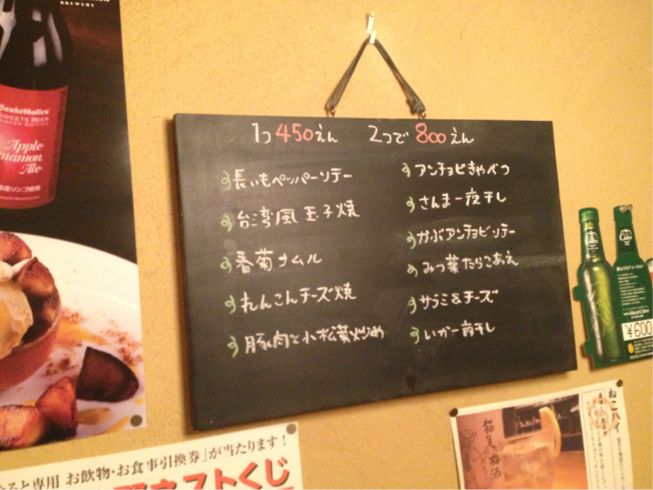 BREWERY
SanktGallen
SWEETS BEER
WINTER EDITION
Apple
Cinnamon
Ale
1つ450えん 2つで800えん
長いもペッパーソテー
台湾風玉子焼
春菊ナムル
れんこんチーズ焼
豚肉と小松菜炒め
アンチョビきゃべつ
さんま一夜干し
かぶアンチョビソテー
みつ葉たらこあえ
サラミ&チーズ
いか一夜干し
¥600
ると専用 お飲物・お食事引換券」が当たります!
ストくじ
ねこハイ